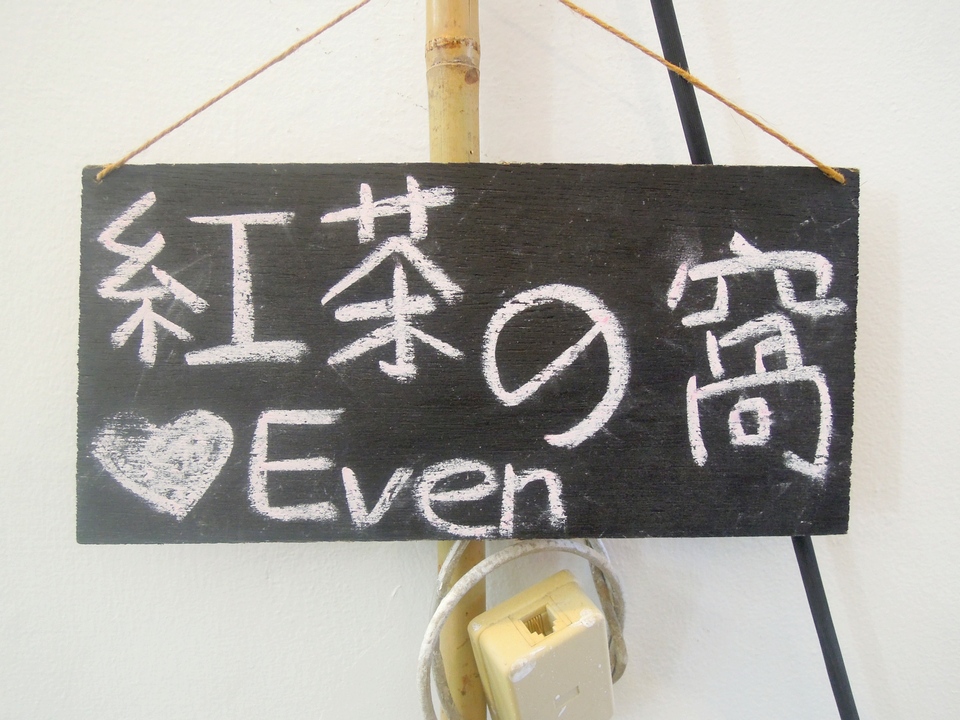 紅茶の窩
♥Even